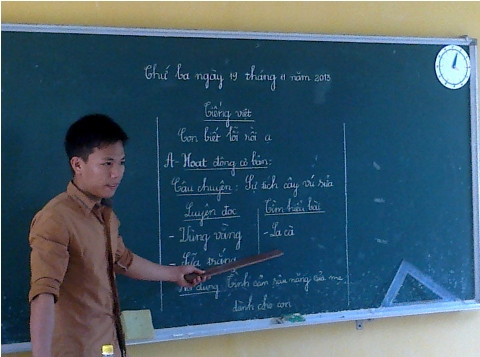 Thứ ba ngày 19 tháng 11 năm 2013
Tiếng việt
Con biết lỗi rồi ạ
A- Hoạt động cơ bản:
Câu chuyện: Sự tích cây vú sữa
Luyện đọc
Tìm hiểu bài
- Vùng vằng
- La cà
- Sữa trắng
Nội dung: Tình cảm sâu nặng của mẹ
dành cho con